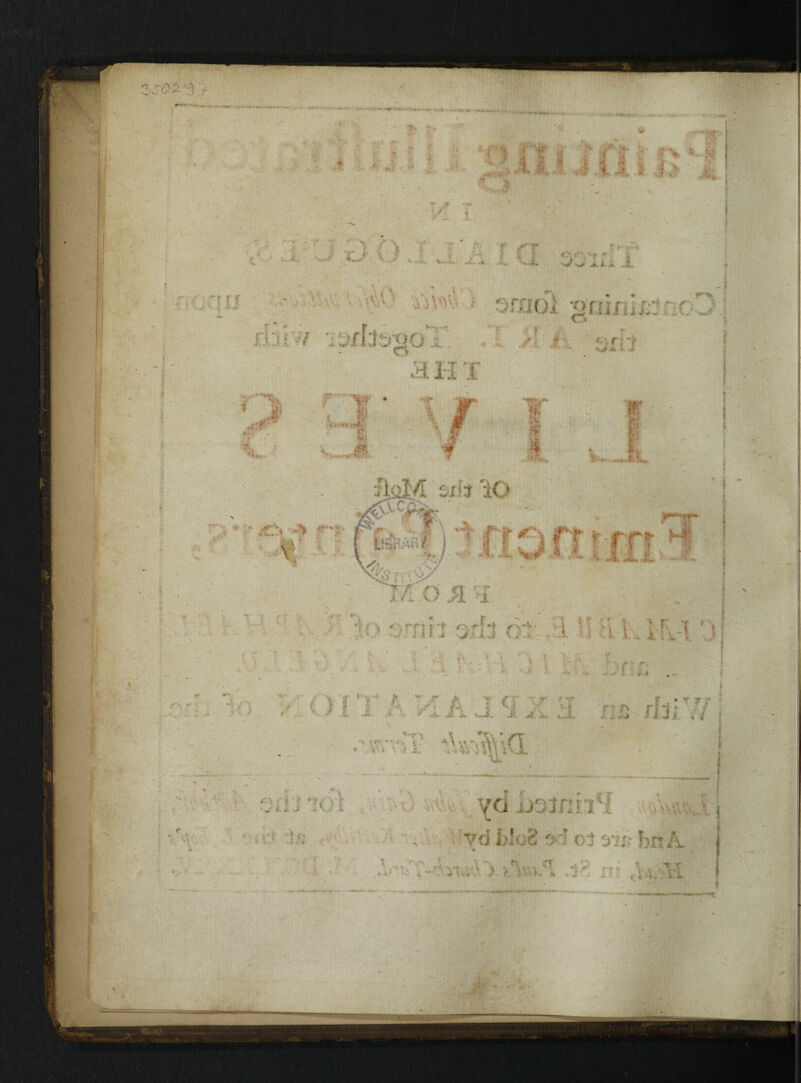 350297
Painting Illustrated
IN
Three DIALOGUES,
Containing some Choice Observations upon
the ART. Together with
THE
LIVES
Of the Most
Eminent Painters,
FROM
CIMABUE, to the time of RAPHAEL
and MICHAEL ANGELO.
With an EXPLANATION of the
Difficult Terms.
Printed by for the
And are to be Sold by at the
Head, in St. Paul's Church-Yard.
WELLCOME
LIBRARY
INSTITUTE